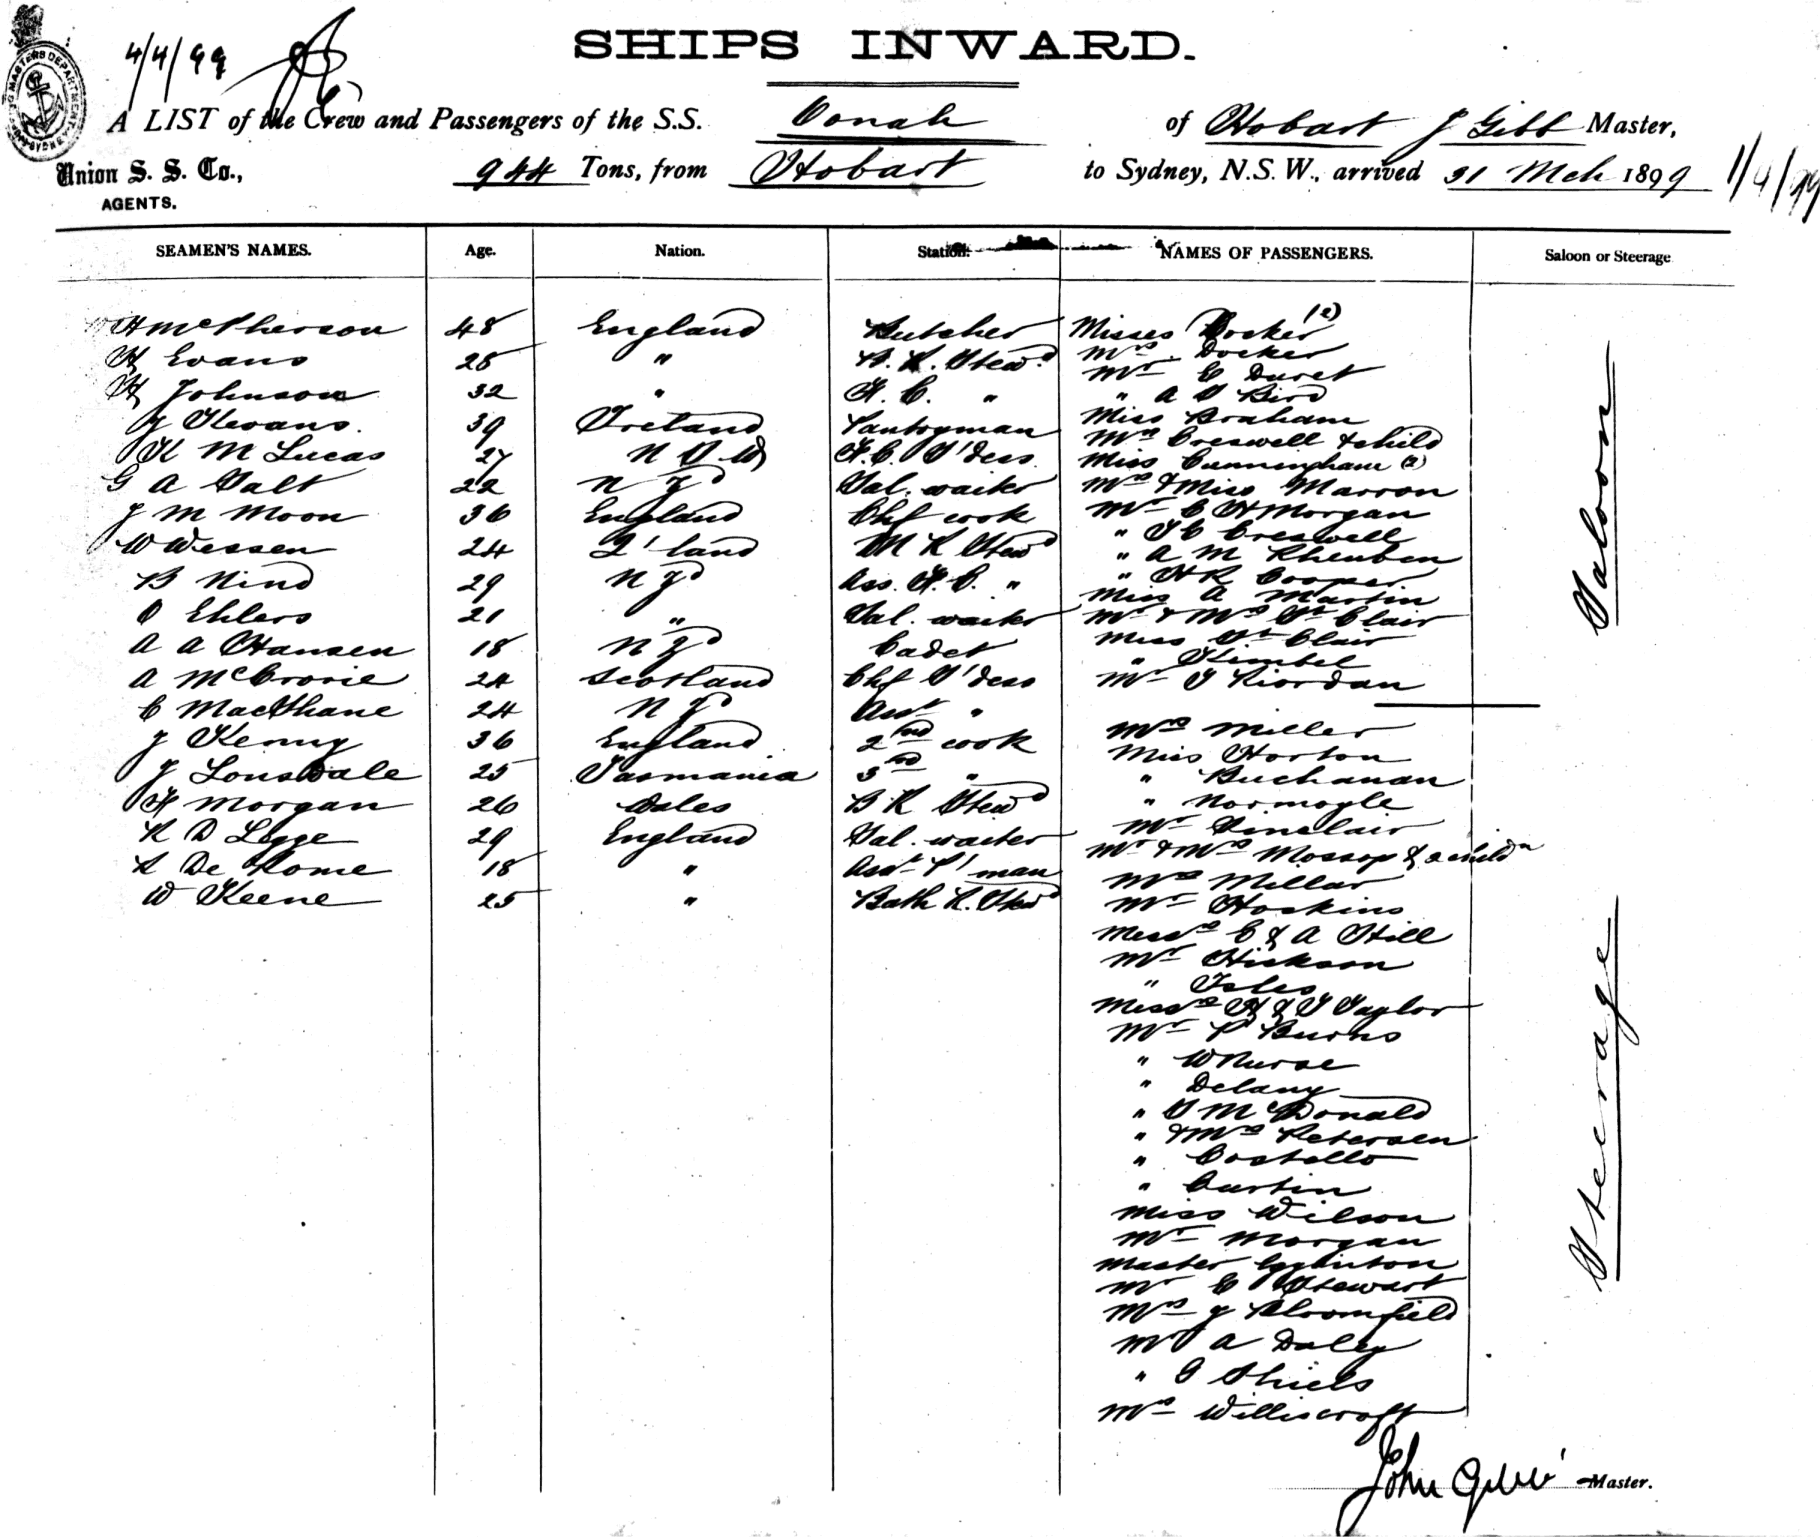 4/4/99
SHIPS INWARD.
A LIST of the Crew and Passengers of the S.S. Oonah of Hobart J Gibb Master,
Union S. S. Co., 944 Tons, from Hobart to Sydney, N.S.W., arrived 31 Mch 1899 1/4/99
AGENTS.
SEAMEN'S NAMES. Age. Nation. Station. NAMES OF PASSENGERS. Saloon or Steerage
H McPherson 48 England Butcher
H Evans 28 " Stewd
H Johnson 32 " F. C. "
J Kevans. 39 Ireland Pantryman
K M Lucas 27 N S W F.C. S'dess
G A Salt 22 N Zd Sal. waiter
J M Moon 36 England Chf cook
W Wessen 24 Q'land M R Stewd
B Nind 29 N Zd Ass. F. C. "
O Ehlers 21 " Sal. waiter
A A Hansen 18 N Zd Cadet
A McCrorie 24 Scotland Chf S'dess
C MacShane 24 N Zd Asst "
J Kenny 36 England 2nd cook
J Lonsdale 25 Tasmania 3rd "
H Morgan 26 Wales B R Stewd
R D Legge 29 England Sal. waiter
L De Rome 18 " Asst P'man
W Keene 25 " Bath R. Stewd
Misses Docker (2)
Mrs. Docker
Mr C Duret
" A S Bird
Miss Braham
Mrs Creswell & child
Miss Cunningham (2)
Mrs & Miss Marron
Mr C H Morgan
" Creswell
" A M Rheuben
" H R Cooper
Miss A Martin
Mr & Mrs St Clair
Miss St Clair
" Kimbel
Mr J Riordan
Saloon
Mrs Miller
Miss Horton
" Buchanan
" Normoyle
Mr Sinclair
Mr & Mrs Mossop & 2 childn
Mrs Millar
Mr Hoskins
Messrs C & A Hill
Mr Hickson
" Isles
Messrs H & J Taylor
Mr P Burns
" W Nurse
" Delany
" S McDonald
" & Mrs Petersen
" Costello
" Curtin
Miss Wilson
Mr Morgan
Master Egginton
Mr C Stewart
Mrs J Bloomfield
Mr A Daley
" G Shiels
Mrs Williscroft
Steerage
John Gibb Master.